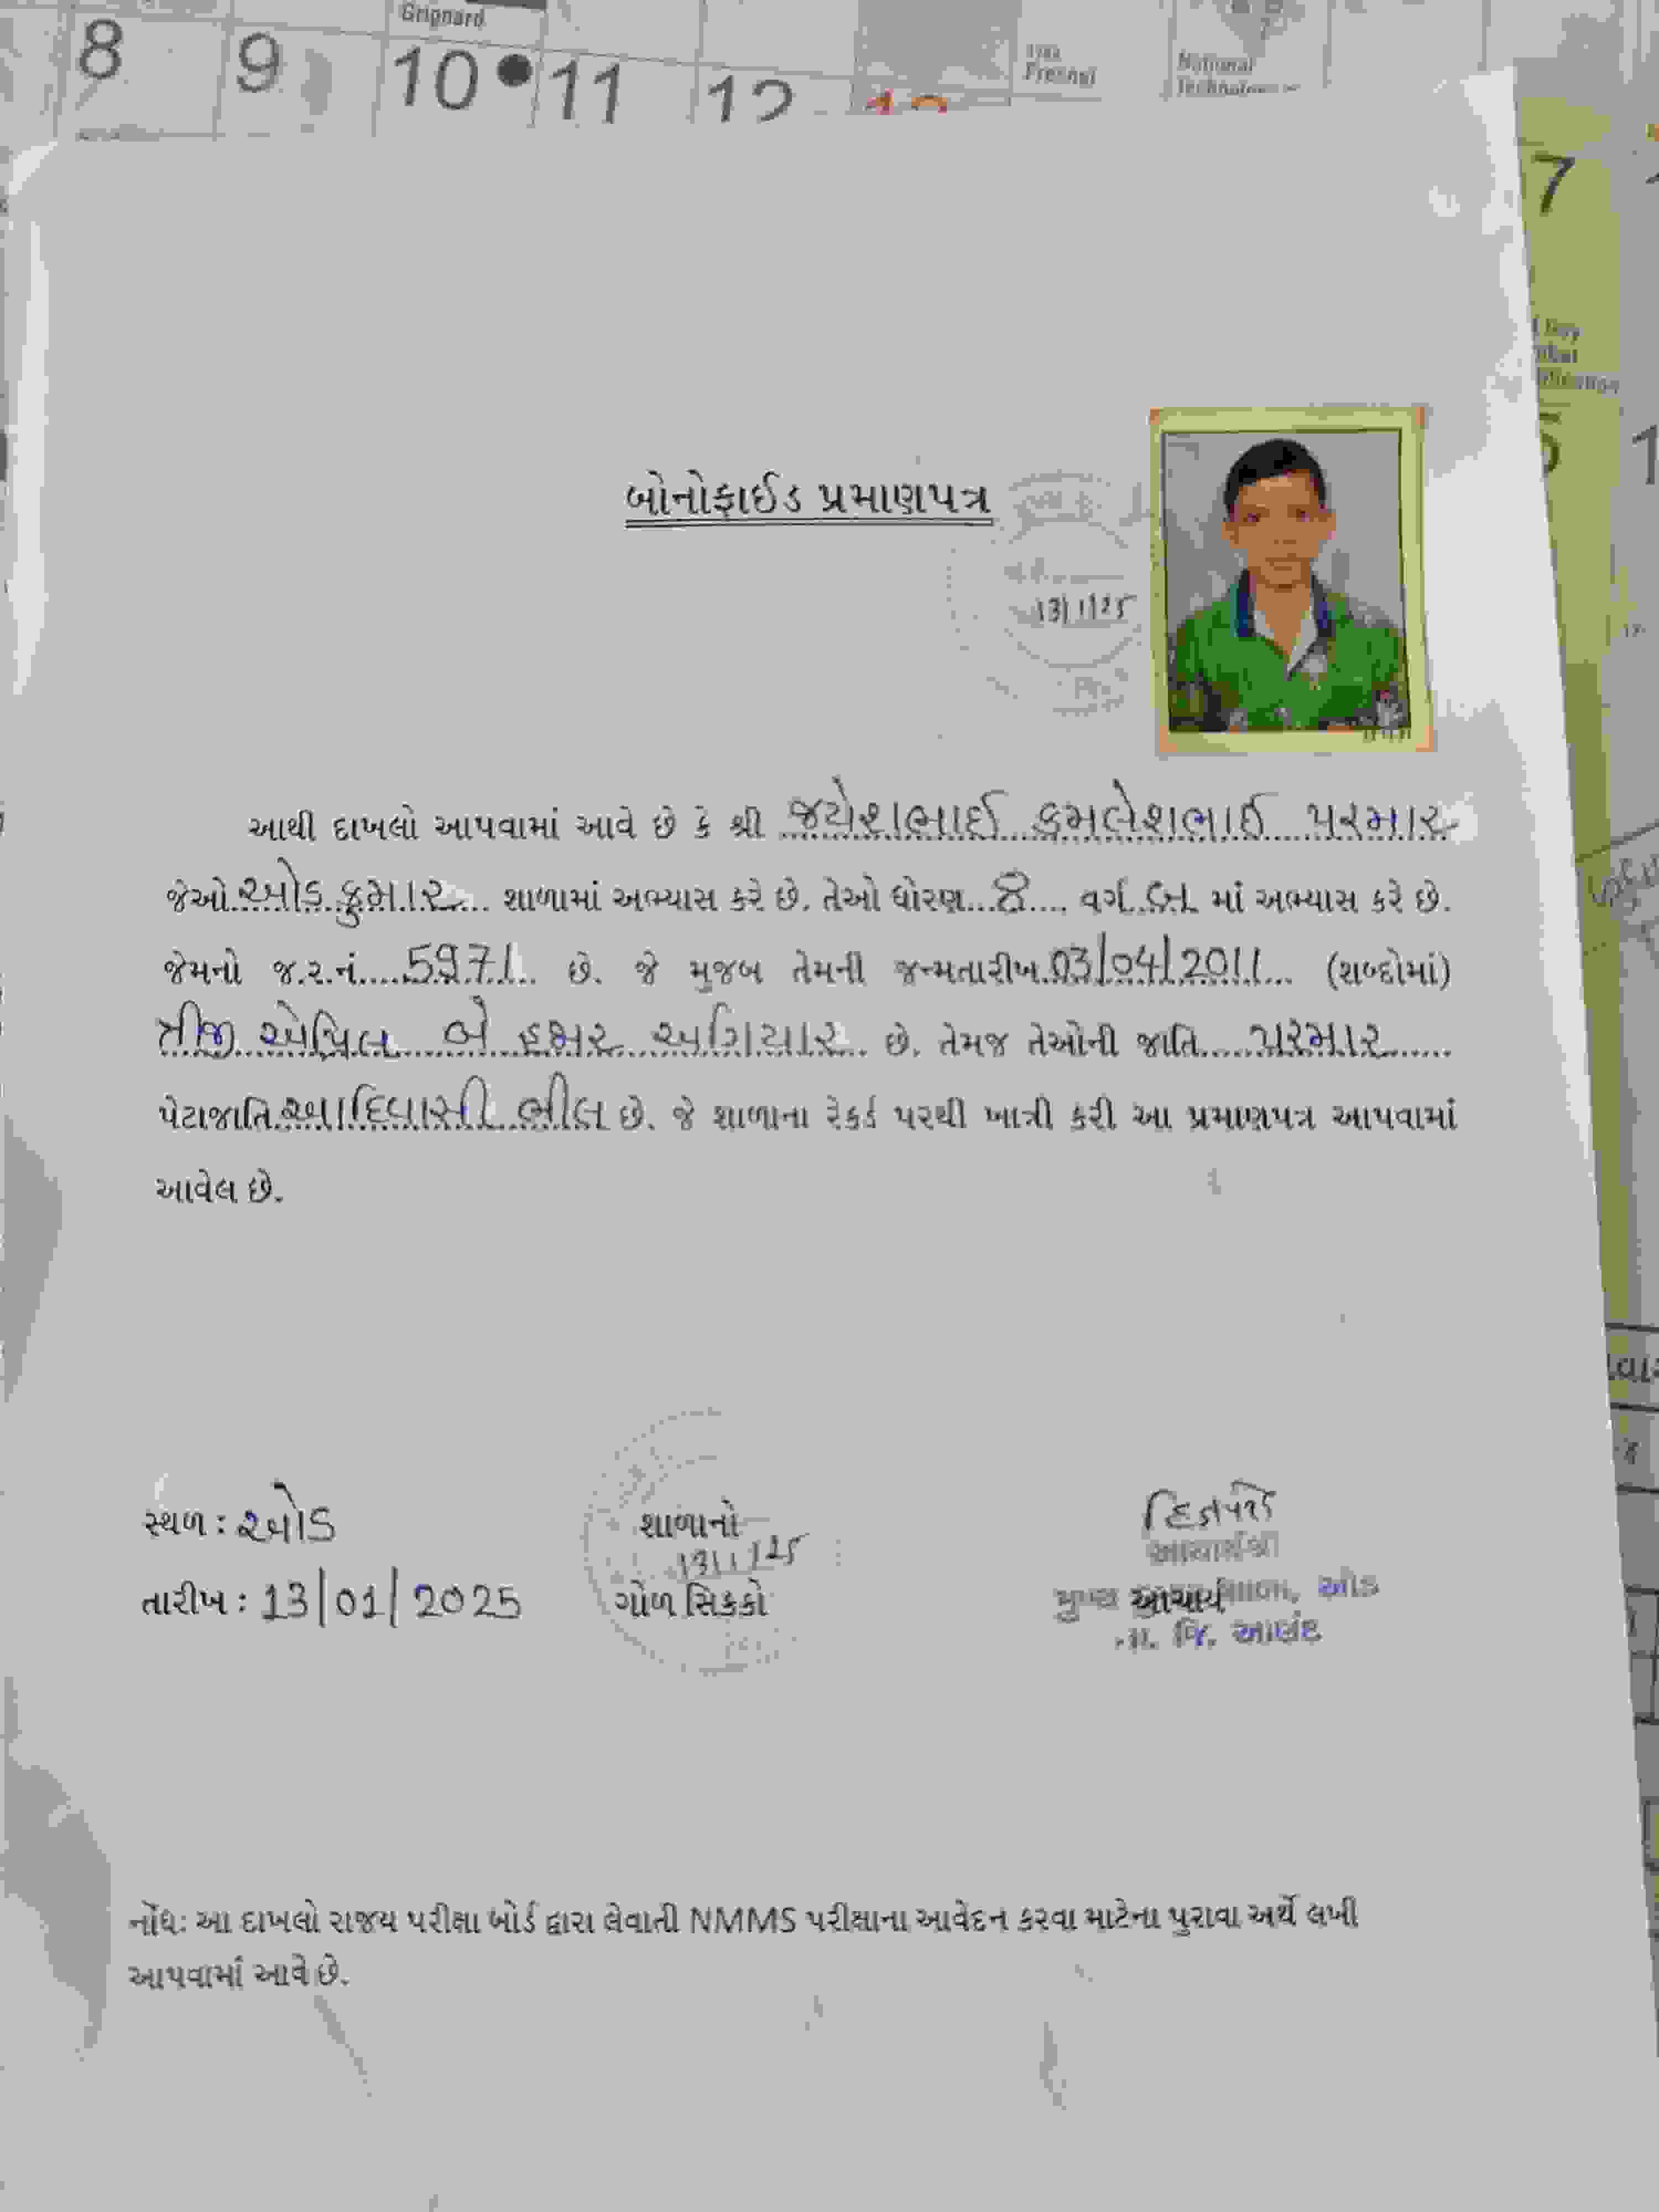 Grignard
8 9 10 11 12
Fresnel
National
7
બોનોફાઈડ પ્રમાણપત્ર
13/1/25
આથી દાખલો આપવામાં આવે છે કે શ્રી જયેશભાઈ કમલેશભાઈ પરમાર
જેઓ ઓડ કુમાર શાળામાં અભ્યાસ કરે છે. તેઓ ધોરણ 8 વર્ગ બ માં અભ્યાસ કરે છે.
જેમનો જ.ર.નં. 5971 છે. જે મુજબ તેમની જન્મતારીખ 03/04/2011 (શબ્દોમાં)
ત્રીજી એપ્રિલ બે હજાર અગિયાર છે. તેમજ તેઓની જાતિ પરમાર
પેટાજાતિ આદિવાસી ભીલ છે. જે શાળાના રેકર્ડ પરથી ખાત્રી કરી આ પ્રમાણપત્ર આપવામાં
આવેલ છે.
સ્થળ : ઓડ
શાળાનો
13/1/25
આચાર્યશ્રી
તારીખ : 13/01/2025
ગોળ સિક્કો
આચાર્ય
ઓડ
જિ. આણંદ
નોંધ: આ દાખલો રાજ્ય પરીક્ષા બોર્ડ દ્વારા લેવાતી NMMS પરીક્ષાના આવેદન કરવા માટેના પુરાવા અર્થે લખી
આપવામાં આવે છે.